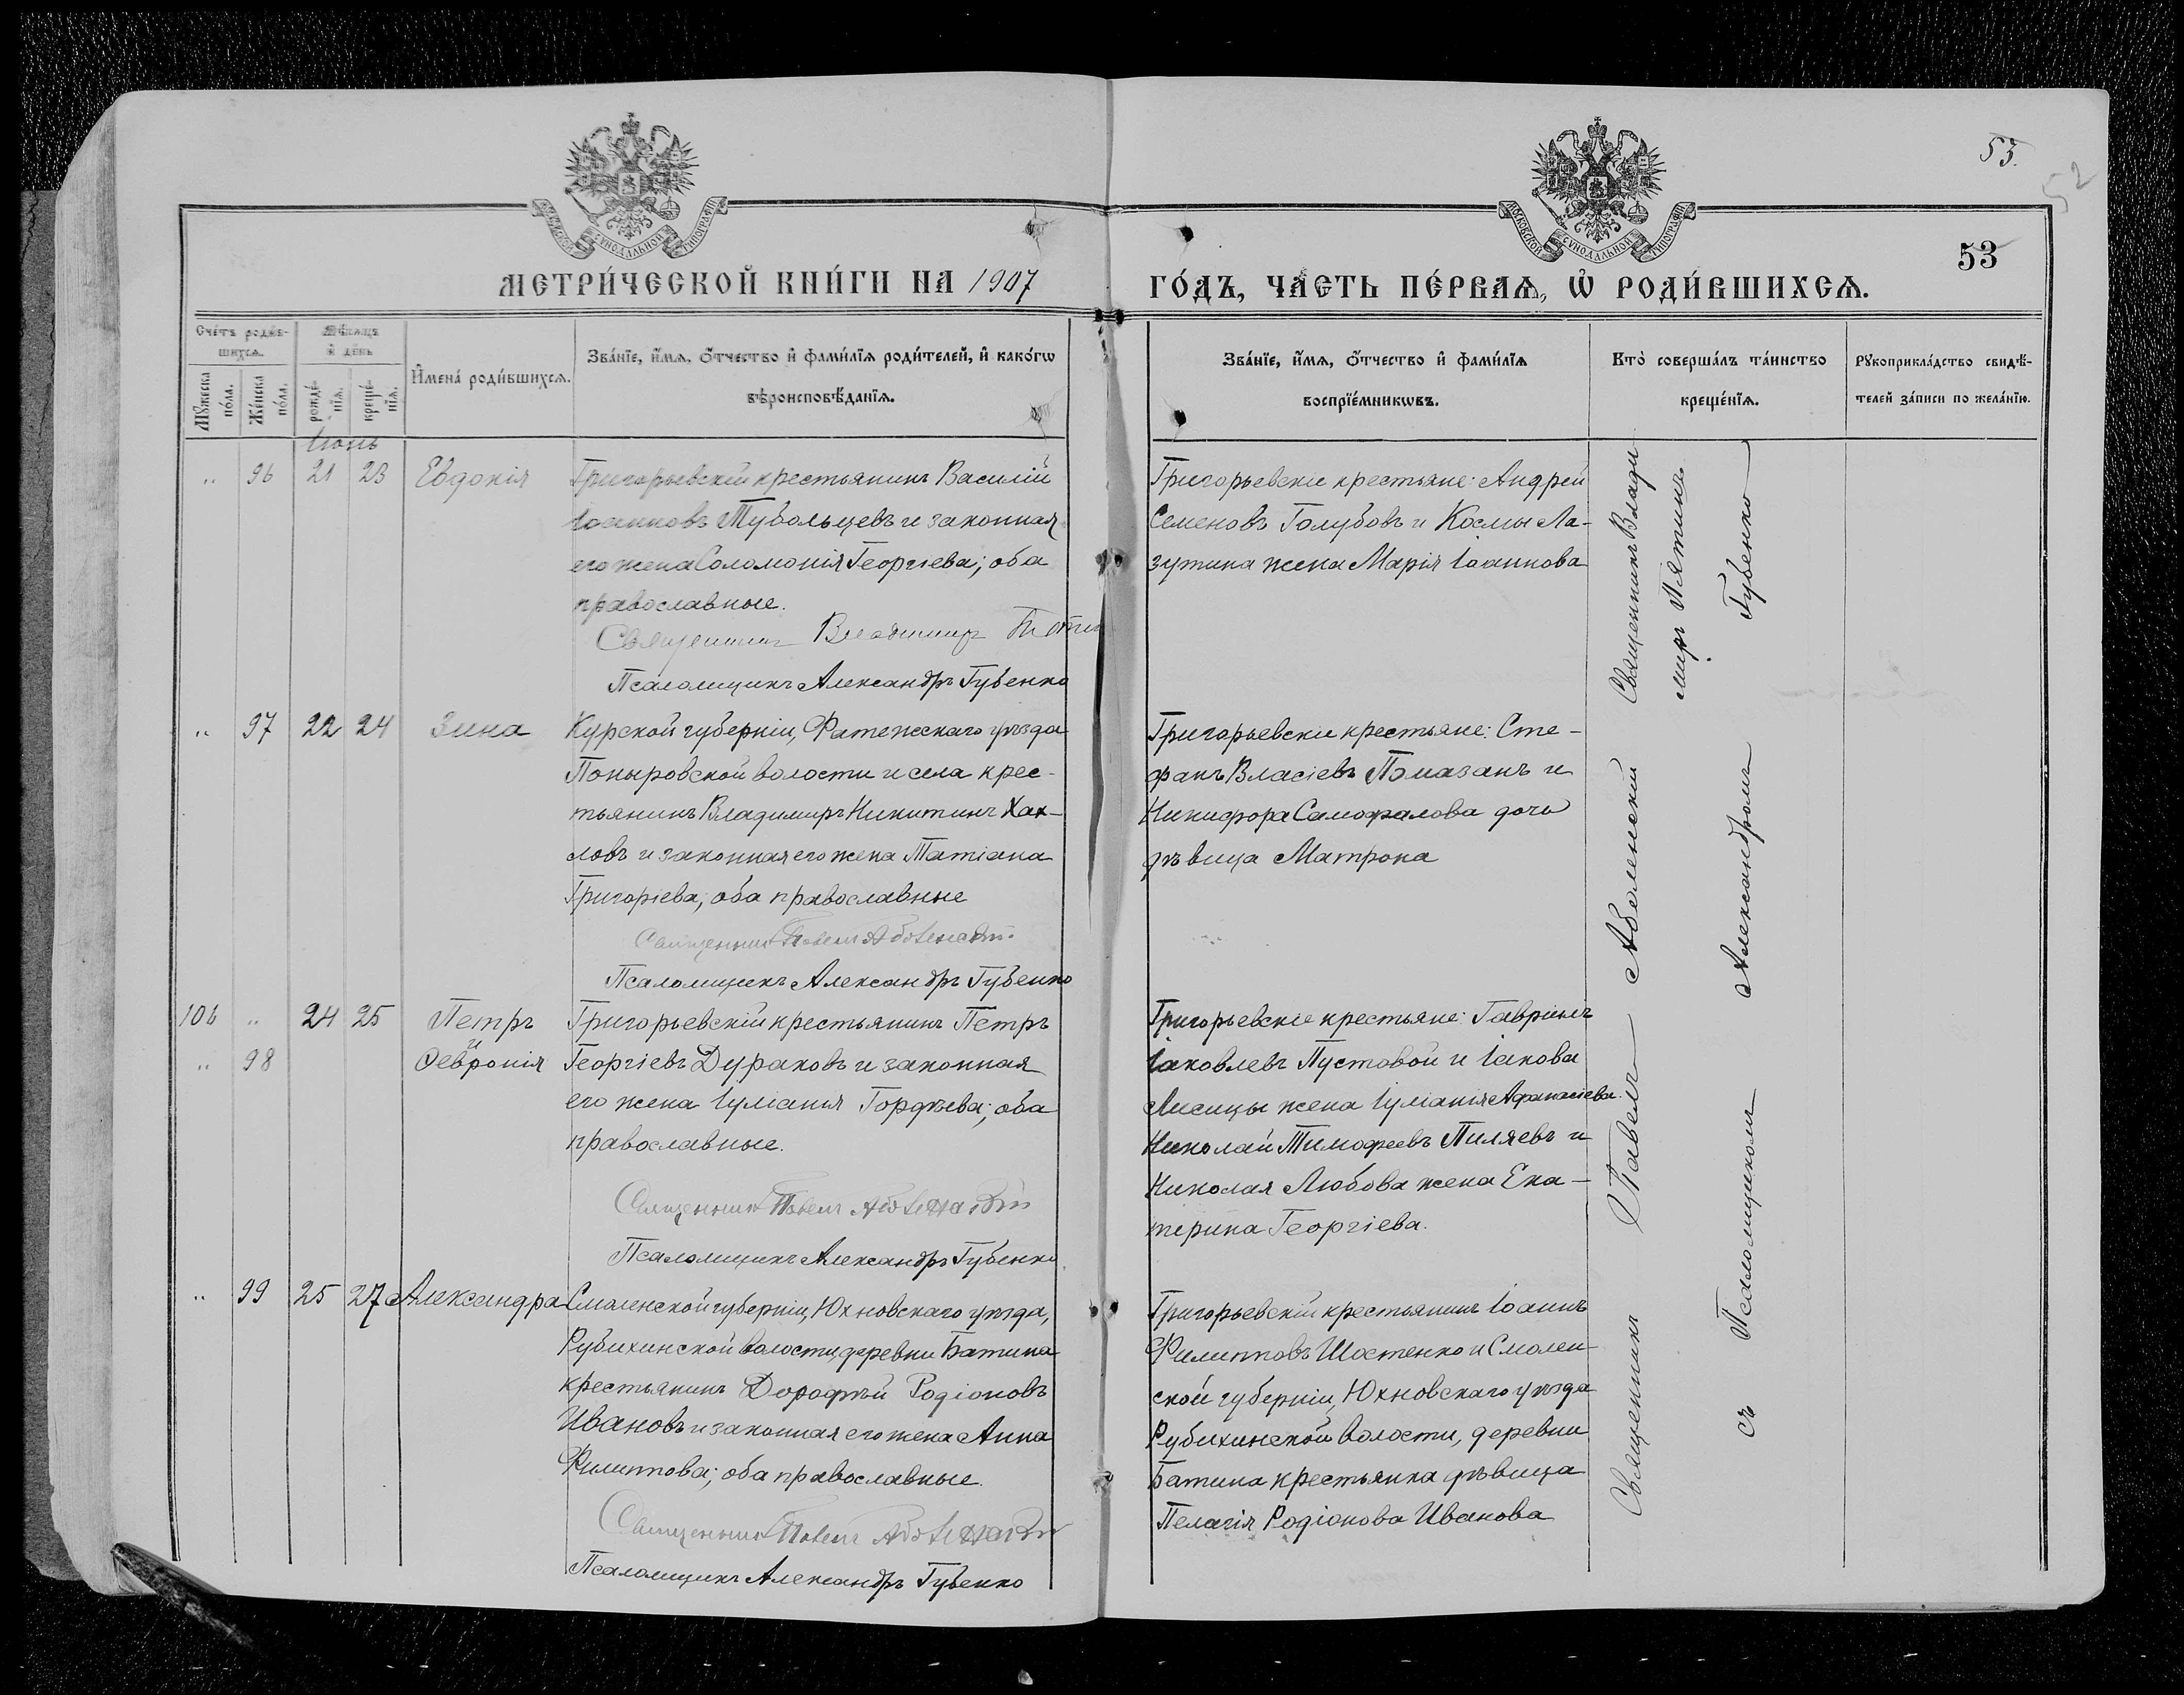 53.
52
МОСКОВСКОЙ СѴНОДАЛЬНОЙ ТИПОГРАФІИ
МОСКОВСКОЙ СѴНОДАЛЬНОЙ ТИПОГРАФІИ
53
МЕТРИ́ЧЕСКОЙ КНИ́ГИ НА 1907
ГО́ДЪ, ЧА́СТЬ ПЕ́РВАѦ, Ѡ҆ РОДИ́ВШИХСѦ.
Сче́тъ роди́в-
шихсѧ.
Мꙋ́жеска по́ла.
Же́нска по́ла.
Мѣ́сѧцъ
и҆ де́нь
рожде́-нїѧ.
креще́-нїѧ.
И҆мена̀ роди́вшихсѧ.
Зва́нїе, и҆́мѧ, ѻ҆́тчество и҆ фами́лїѧ роди́телей, и҆ како́гѡ
вѣроисповѣ́данїѧ.
Зва́нїе, и҆́мѧ, ѻ҆́тчество и҆ фами́лїѧ
воспрїе́мникѡвъ.
Кто̀ соверша́лъ та́инство
креще́нїѧ.
Рꙋкоприкла́дство свидѣ́-
телей за́писи по жела́нїю.
Іюнь
" 96 21 23 Евдокія
Григорьевскій крестьянинъ Василій
Іоанновъ Тубольцевъ и законная
его жена Соломонія Георгіева; оба
православные.
Священникъ Владимиръ Пятинъ
Псаломщикъ Александръ Губенко
Григорьевскіе крестьяне: Андрей
Семеновъ Голубовъ и Космы Ла-
зутина жена Марія Іоаннова
Священникъ Влади
миръ Пятинъ
" 97 22 24 Зина
Курской губерніи, Фатежскаго уѣзда
Поныровской волости и села крес-
тьянинъ Владимиръ Никитинъ Хах-
ловъ и законная его жена Татіана
Григоріева; оба православные
Священникъ Павелъ Аболенскій
Псаломщикъ Александръ Губенко
Григорьевскіе крестьяне: Сте-
фанъ Власіевъ Помазанъ и
Никифора Самофалова дочь
дѣвица Матрона
106 " 24 25 Петръ
и
" 98 Февронія
Григорьевскій крестьянинъ Петръ
Георгіевъ Дураковъ и законная
его жена Іуліанія Гордѣева; оба
православные.
Священникъ Павелъ Аболенскій
Псаломщикъ Александръ Губенко
Григорьевскіе крестьяне: Гавріилъ
Іаковлевъ Пустовой и Іакова
Лисицы жена Іуліанія Афанасіева.
Николай Тимофеевъ Пиляевъ и
Николая Любова жена Ека-
терина Георгіева.
" 99 25 27 Александра
Смоленской губерніи, Юхновскаго уѣзда,
Рубихинской волости, деревни Батина
крестьянинъ Дорофѣй Родіоновъ
Ивановъ и законная его жена Анна
Филиппова; оба православные.
Священникъ Павелъ Аболенскій
Псаломщикъ Александръ Губенко
Григорьевскій крестьянинъ Іоаннъ
Филипповъ Шостенко и Смолен-
ской губерніи, Юхновскаго уѣзда
Рубихинской волости, деревни
Батина крестьянка дѣвица
Пелагія Родіонова Иванова
Священникъ Павелъ Аболенскій
съ Псаломщикомъ Александромъ Губенко